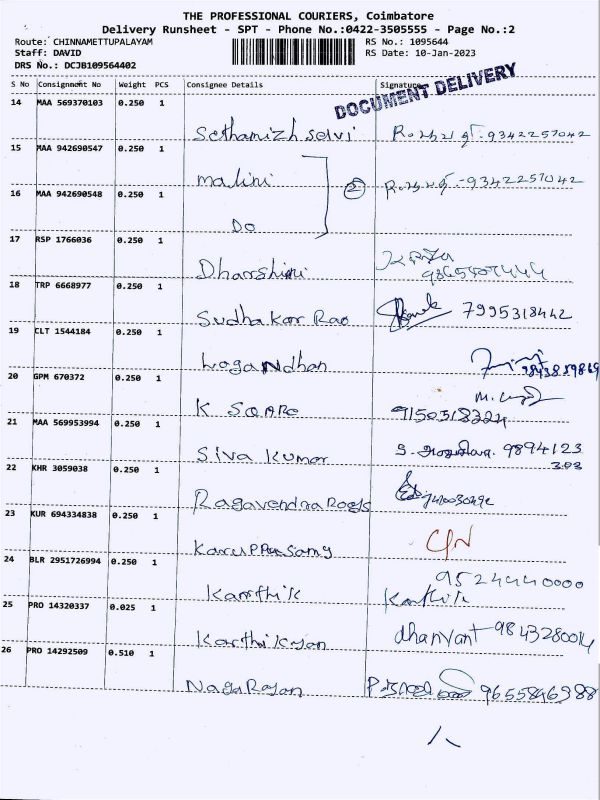 THE PROFESSIONAL COURIERS, Coimbatore
Delivery Runsheet - SPT - Phone No.:0422-3505555 - Page No.:2
Route: CHINNAMETTUPALAYAM RS No.: 1095644
Staff: DAVID RS Date: 10-Jan-2023
DRS No.: DCJB109564402
S No Consignment No Weight PCS Consignee Details Signature
DOCUMENT DELIVERY
14 MAA 569370103 0.250 1
Sethamizh selvi 9342257042
15 MAA 942690547 0.250 1
malini 2 9342257042
16 MAA 942690548 0.250 1
Do
17 RSP 1766036 0.250 1
Dharshini
18 TRP 6668977 0.250 1
Sudhakar Rao 7995318442
19 CLT 1544184 0.250 1
Logandhan
20 GPM 670372 0.250 1
K SQARE
21 MAA 569953994 0.250 1
Siva Kumar 9894123
303
22 KHR 3059038 0.250 1
23 KUR 694334838 0.250 1
Karuppusamy
24 BLR 2951726994 0.250 1 9524440000
Karthik Karthik
25 PRO 14320337 0.025 1
dhanvant 9843280014
26 PRO 14292509 0.510 1
NagaRajan 9655846388